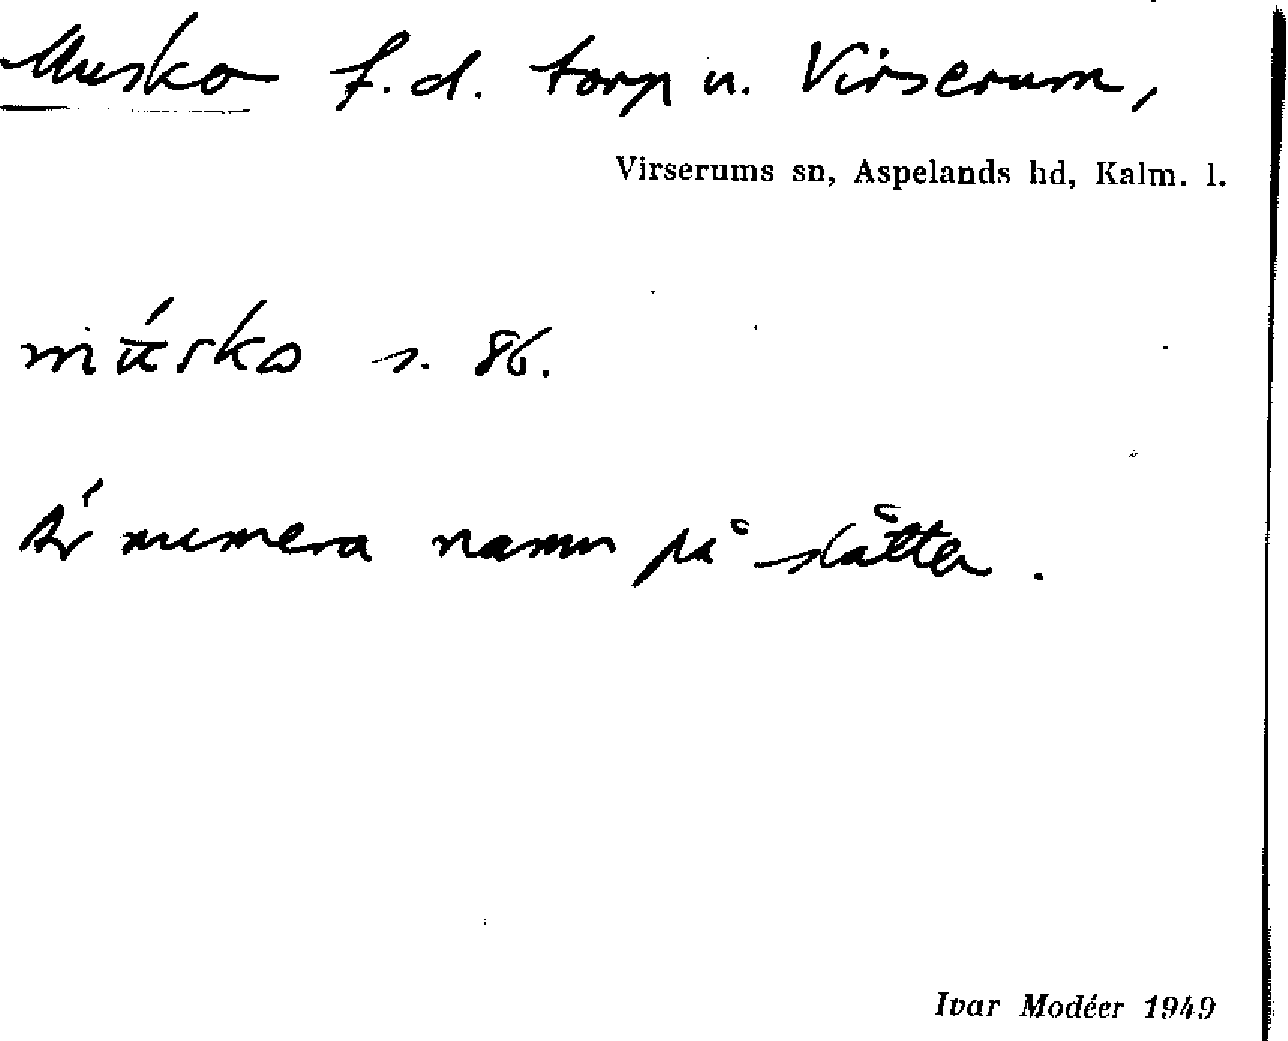 Musko f.d. torp u. Virserum,
Virserums sn, Aspelands hd, Kalm. l.
músko s. 86.
Är numera namn på slåtter.
Ivar Modéer 1949